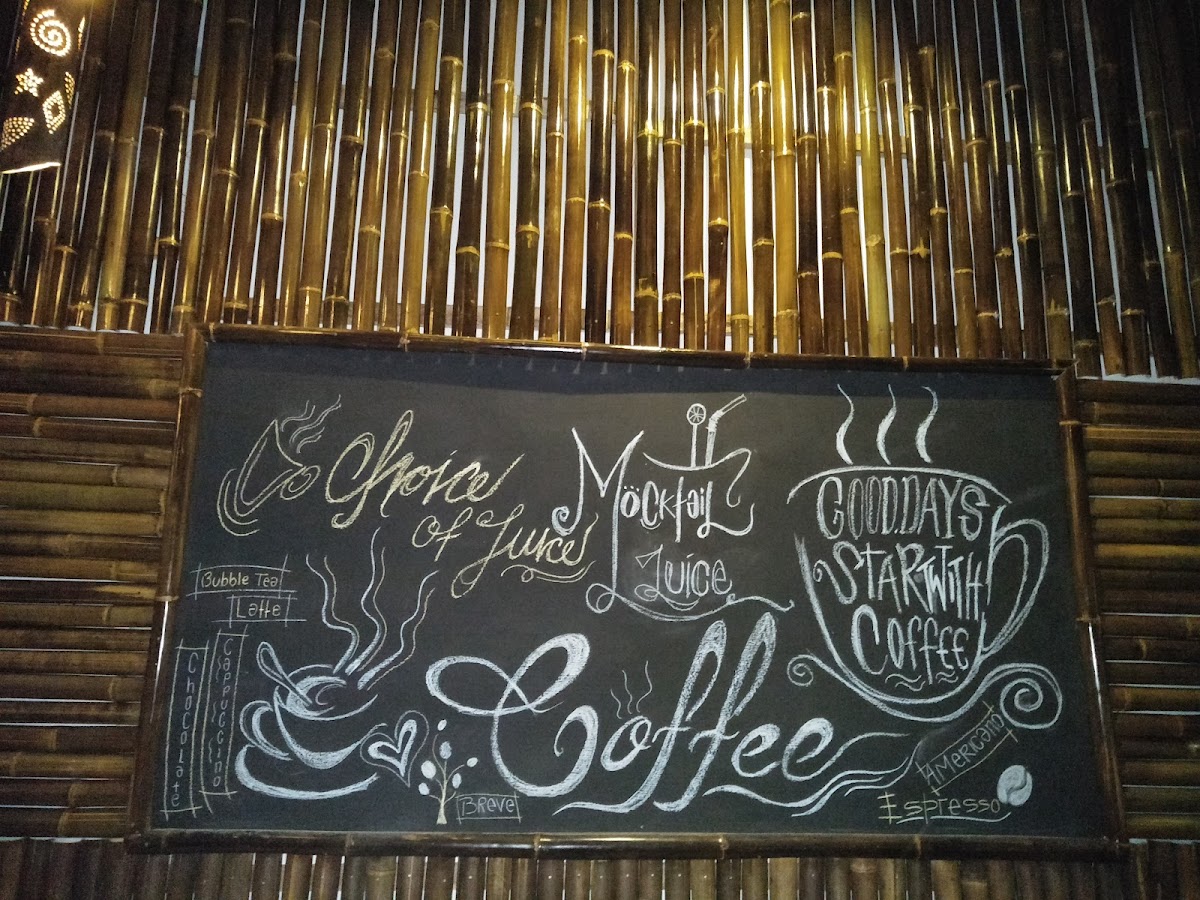 Choice
of Juice
Möcktail
Juice
GOOD.DAYS
START WITH
Coffee
Bubble Tea
Latte
Chocolate
Cappuccino
Coffee
Breve
Americano
Espresso